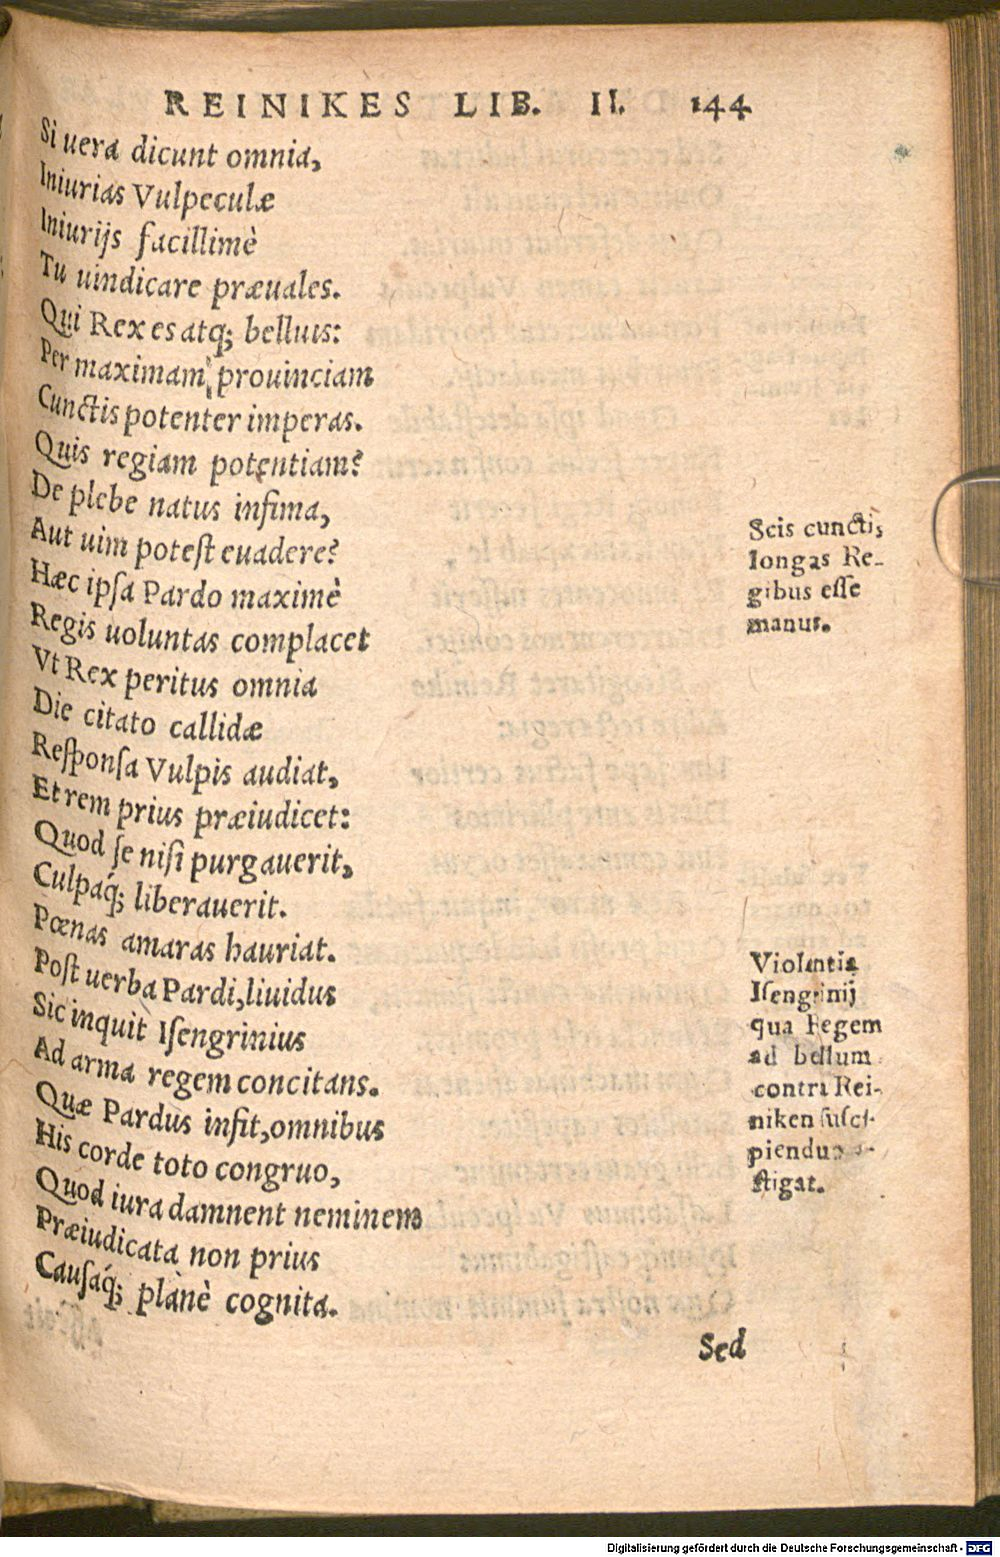 REINIKES LIB. II. 144
Si uera dicunt omnia,
Iniurias Vulpeculæ
Iniurijs facillimè
Tu uindicare præuales.
Qui Rex es atq; belluis:
Per maximam prouinciam
Cunctis potenter imperas.
Quis regiam potentiam?
De plebe natus infima,
Aut uim potest euadere?
Hæc ipsa Pardo maximè
Regis uoluntas complacet
Vt Rex peritus omnia
Die citato callidæ
Responsa Vulpis audiat,
Et rem prius præiudicet:
Quod se nisi purgauerit,
Culpaq́; liberauerit.
Pœnas amaras hauriat.
Post uerba Pardi, liuidus
Sic inquit Isengrinius
Ad arma regem concitans.
Quæ Pardus insit, omnibus
His corde toto congruo,
Quod iura damnent neminem
Præiudicata non prius
Causaq́; planè cognita.
Sed
Scis cunctis
longas Re-
gibus esse
manus.
Violentia
Isengrinij
qua Regem
ad bellum
contra Rei-
niken susci-
piendum
stigat.
Digitalisierung gefördert durch die Deutsche Forschungsgemeinschaft - DFG